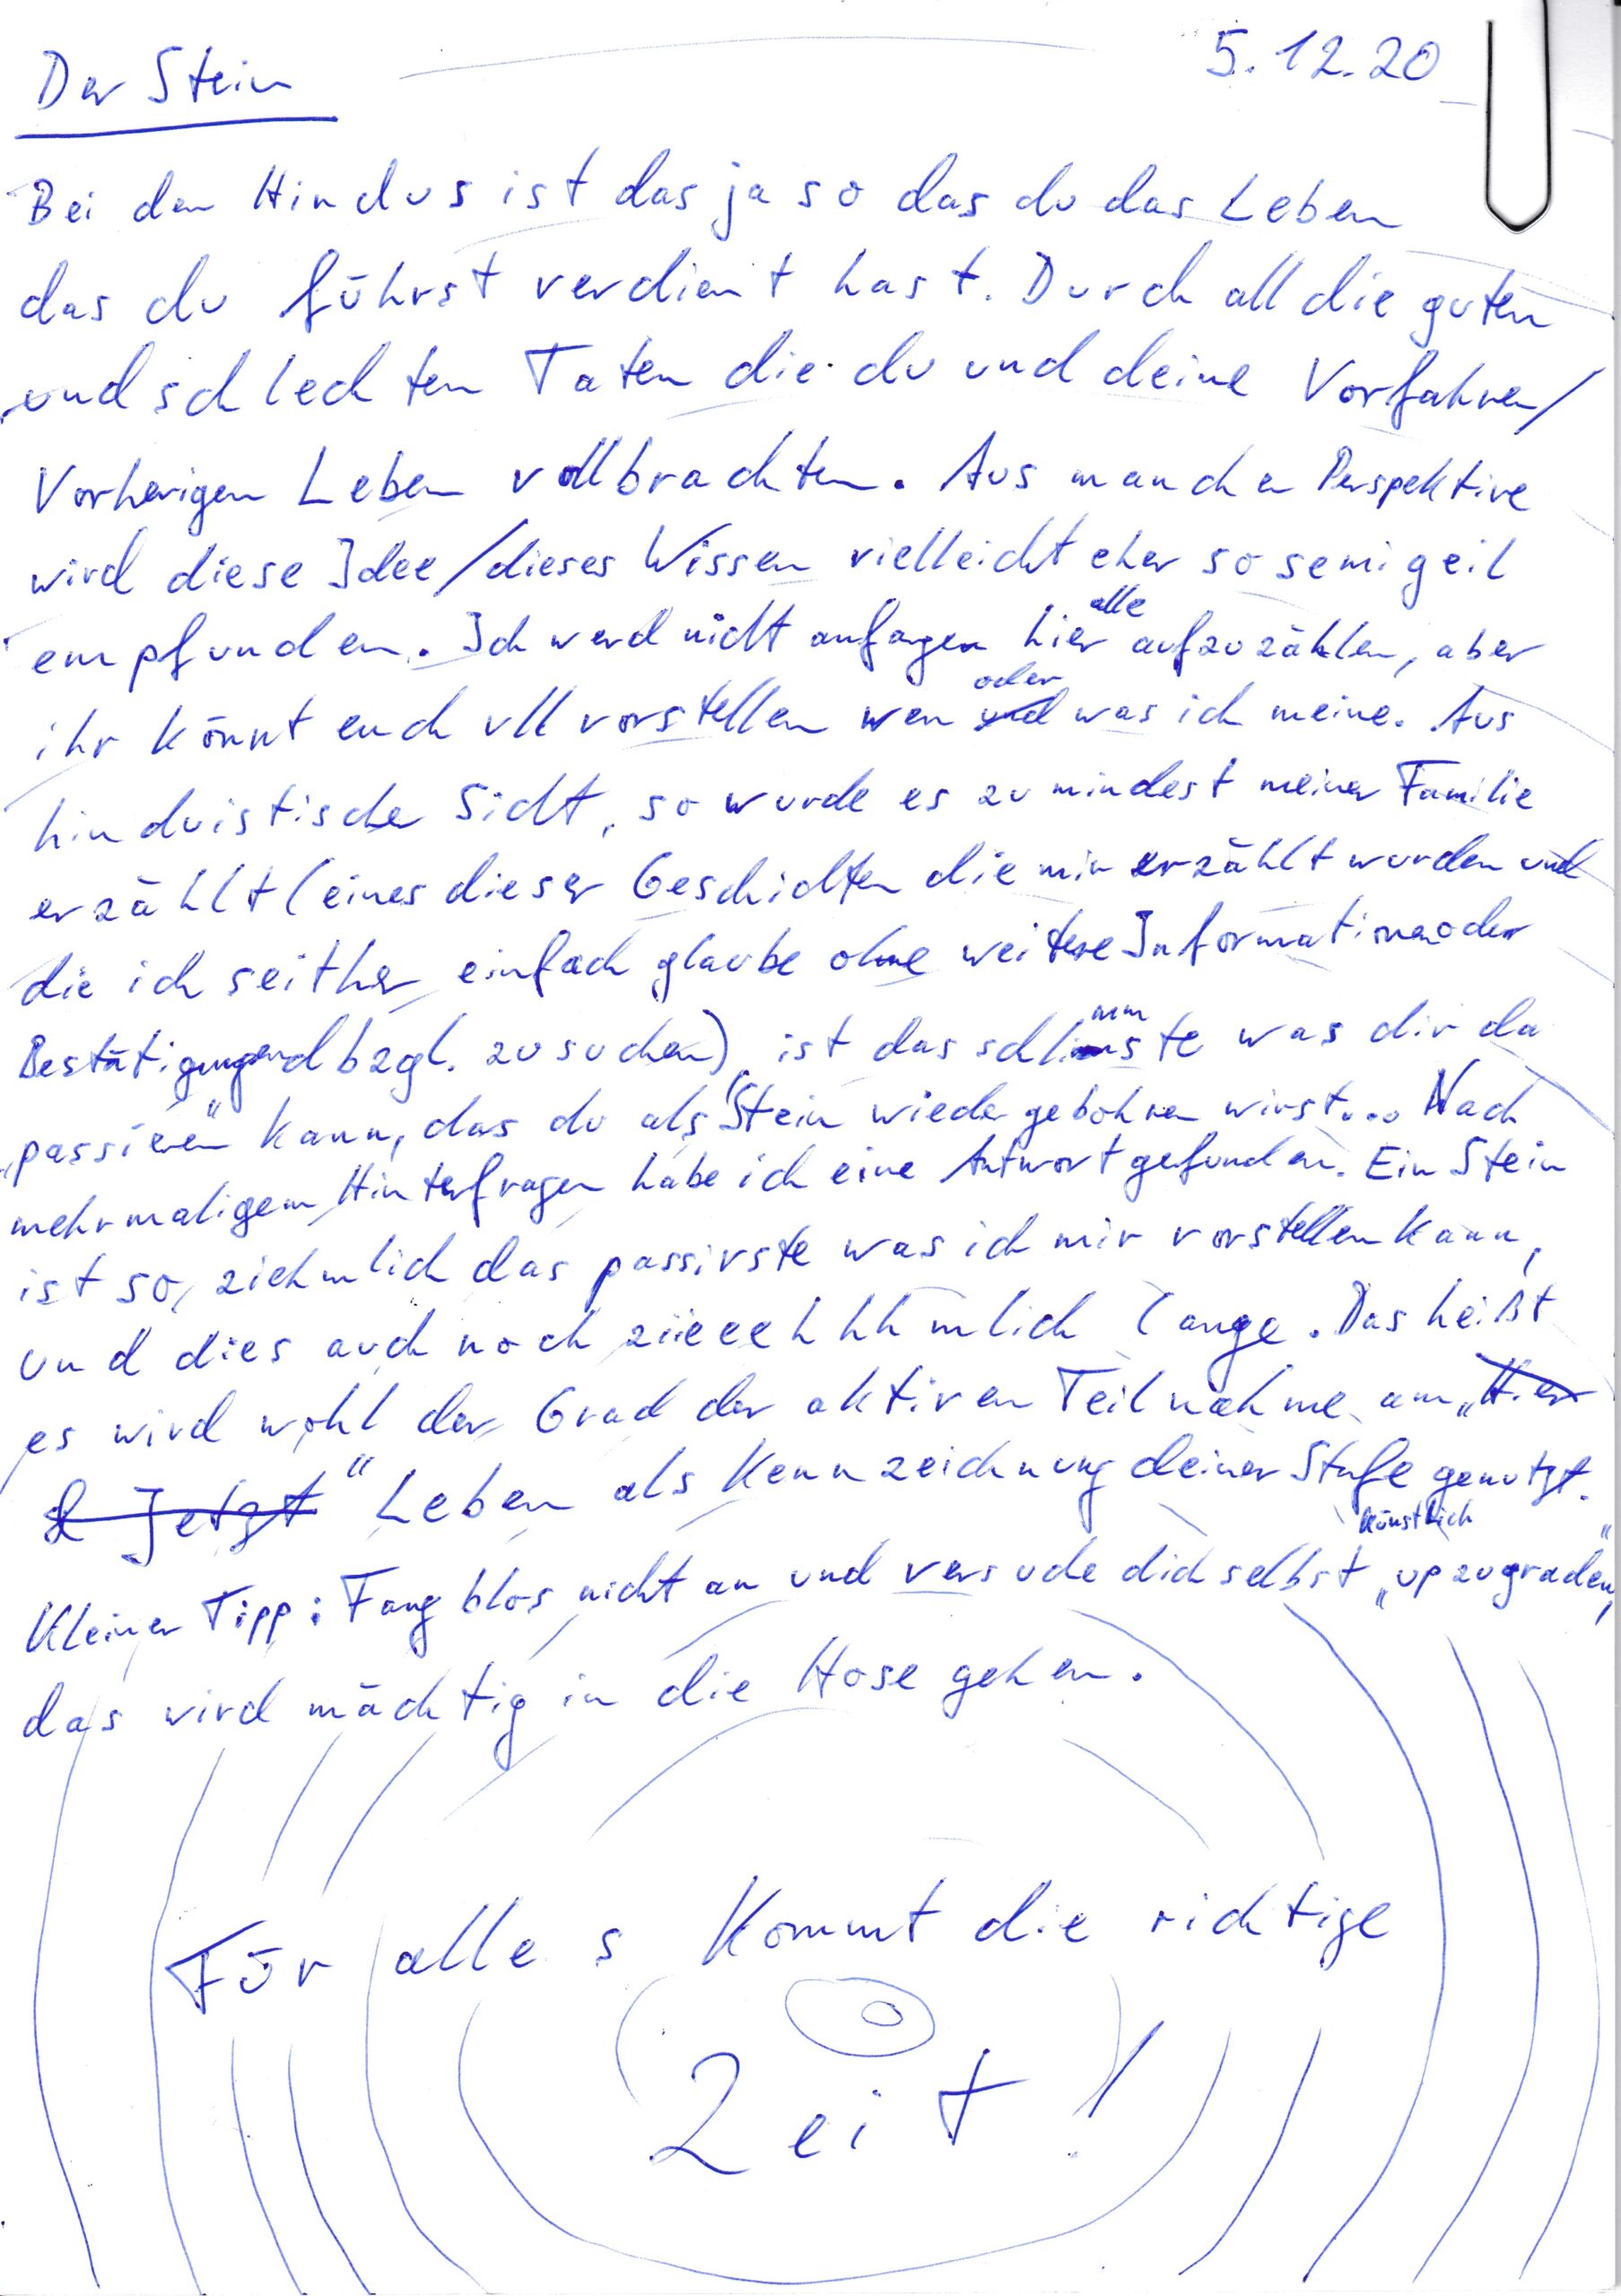 Der Stein
5.12.20
Bei den Hindus ist das ja so das du das Leben
das du führst verdient hast. Durch all die guten
und schlechten Taten die du und deine Vorfahren/
Vorherigen Leben vollbrachten. Aus mancher Perspektive
wird diese Idee/dieses Wissen vielleicht eher so semi geil
empfunden. Ich werd nicht anfangen hier alle aufzuzählen, aber
ihr könnt euch vll vorstellen wen oder was ich meine. Aus
hinduistischer Sicht, so wurde es zumindest meiner Familie
erzählt (eines dieser Geschichten die mir erzählt wurden und
die ich seither einfach glaube ohne weitere Informationen oder
Bestätigungen dbzgl. zu suchen), ist das schlimmste was dir da
„passieren“ kann, das du als Stein wiedergebohren wirst... Nach
mehrmaligem Hinterfragen habe ich eine Antwort gefunden. Ein Stein
ist so ziehmlich das passivste was ich mir vorstellen kann,
und dies auch noch ziieeehhhmlich lange. Das heißt
es wird wohl der Grad der aktiven Teilnahme am „Hier
& Jetzt“ Leben als Kennzeichnung deiner Stufe genutzt.
Kleiner Tipp: Fang blos nicht an und versuche dich selbst künstlich „upzugraden“,
das wird mächtig in die Hose gehen.
Für alles kommt die richtige
Zeit!